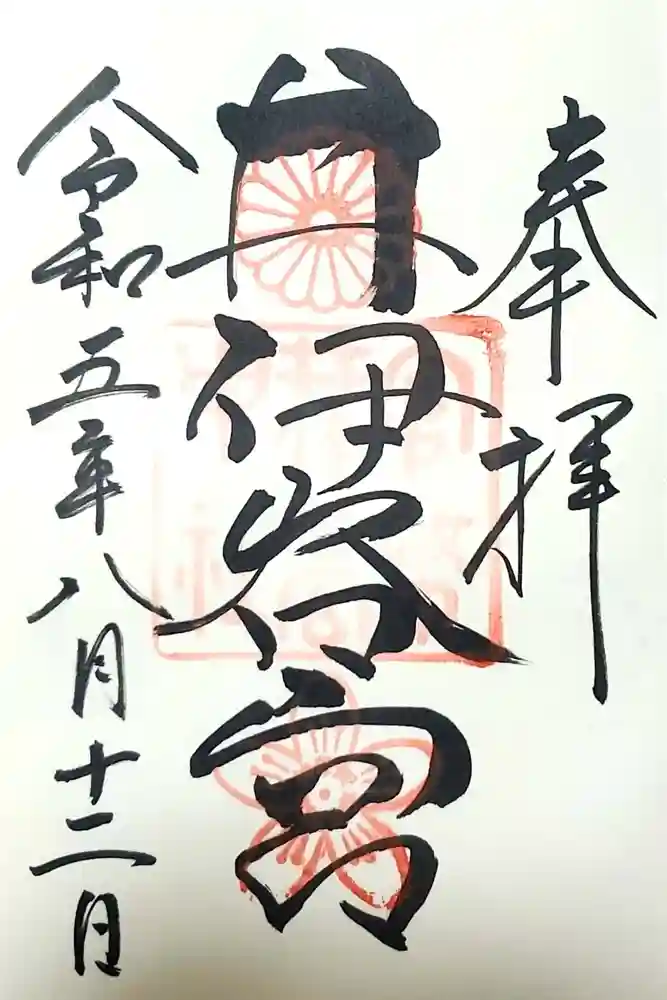 奉拝
井伊谷宮
令和五年八月十二日